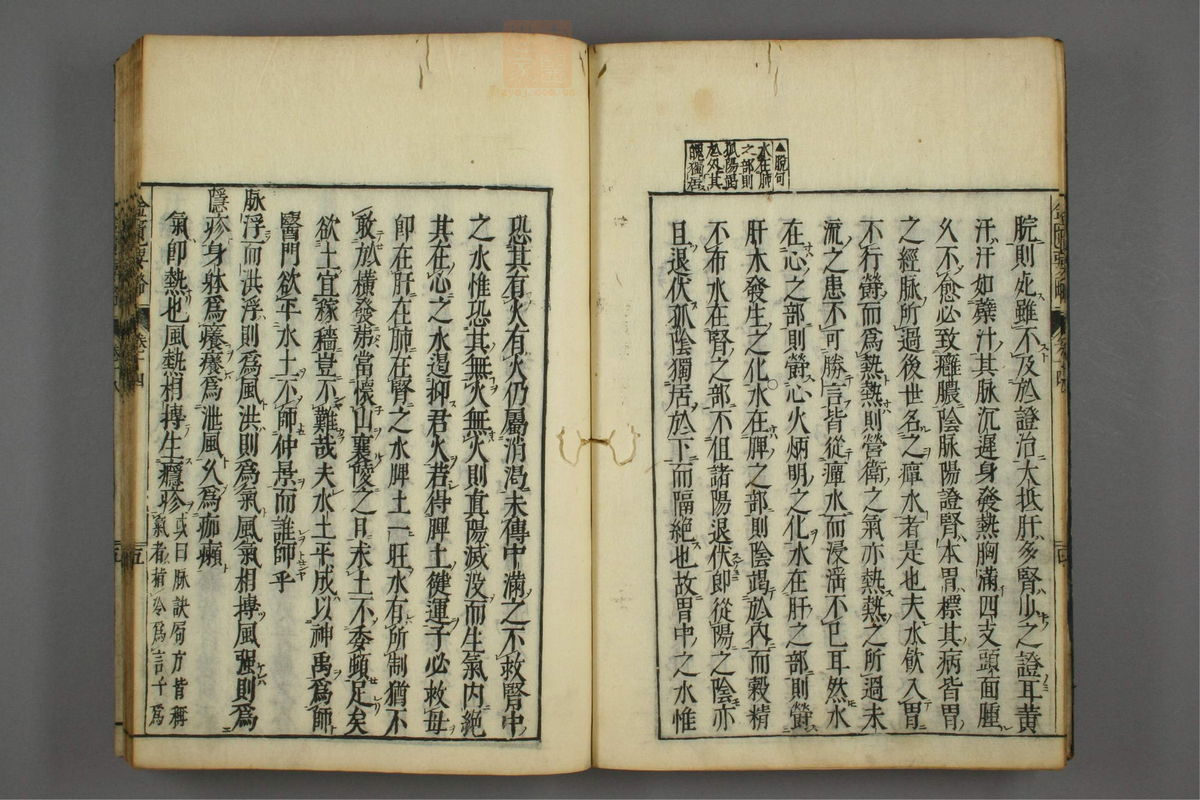 ▲脫句
水在肺
之部則
孤陽竭
於外其
魄獨居
脘則処雖不及於證治大抵肝多腎少之證耳黃
汗汗如蘗汁其脉沉遲身發熱胸滿四支頭面腫
久不愈必致癰膿陰脉陽證腎本胃標其病皆胃
之經脉所過後世名之癉水者是也夫水飲入胃
不行欝而爲熱熱則營衛之氣亦熱熱之所過末
流之患不可勝言皆從癉水而浸淫不已耳然水
在心之部則欝心火炳明之化水在肝之部則欝
肝木發生之化水在脾之部則陰竭於內而穀精
不布水在腎之部不但諸陽退伏即從陽之陰亦
且退伏孤陰獨居於下而隔絶也故胃中之水惟
恐其有火有火仍屬消渴未傳中滿之不救腎中
之水惟恐其無火無火則真陽滅没而生氣內絶
其在心之水遏抑君火若得脾土健運子必救母
即在肝在肺在腎之水脾土一旺水有所制猶不
敢於橫發第當懷山襄陵之日求土不委頓足矣
欲土宜稼穡豈不難哉夫水土平成以神禹爲師
醫門欲平水土不師仲景而誰師乎
脉浮而洪浮則爲風洪則爲氣風氣相搏風強則爲
隱疹身躰爲癢癢爲泄風久爲痂癩
氣即熱也風熱相搏生癮疹
或曰脉訣局方皆稱
氣者積冷爲言千爲